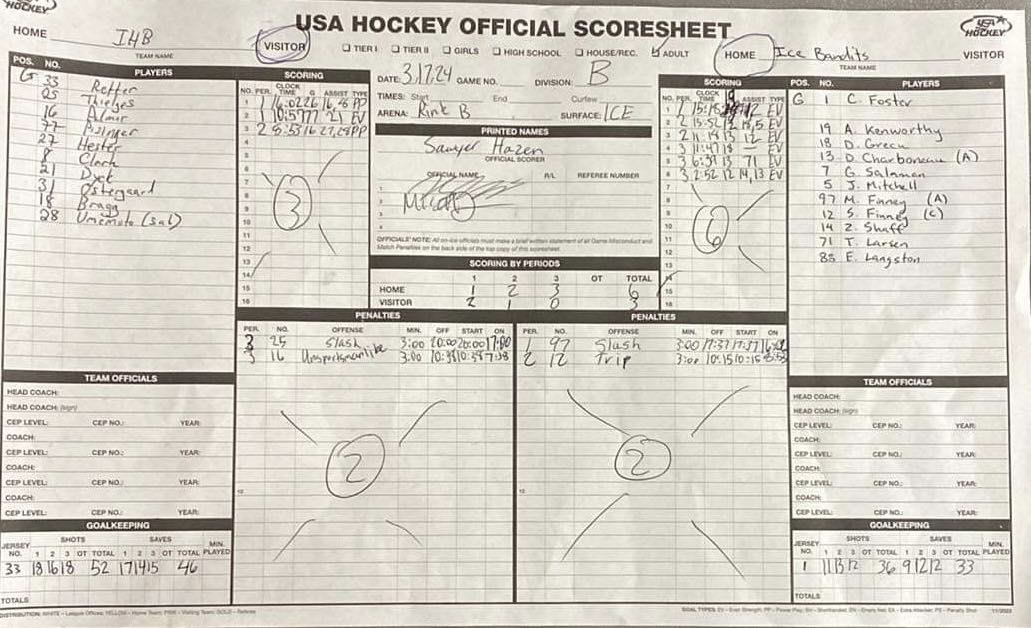 HOCKEY
USA HOCKEY OFFICIAL SCORESHEET
USA HOCKEY
HOME IHB VISITOR
TEAM NAME
TIER I TIER II GIRLS HIGH SCHOOL HOUSE/REC. ADULT
HOME Ice Bandits VISITOR
TEAM NAME
POS. NO. PLAYERS
G 33 Reffer
25 Thielges
16 Almir
77
27 Hester
8 Clark
21 Dyck
31 Østergaard
18 Bragg
28 Umemoto (sub)
SCORING
NO. PER. CLOCK TIME G ASSIST TYPE
1 1 16:02 26 16,8 PP
2 1 10:59 77 21 EV
3 2 5:53 16 27,28 PP
4
5
6
7
8
9
10
11
12
13
14
15
16
3
DATE: 3.17.24 GAME NO. DIVISION: B
TIMES: Start End Curfew
ARENA: Rink B SURFACE: ICE
PRINTED NAMES
Sawyer Hazen
OFFICIAL SCORER
OFFICIAL NAME R/L REFEREE NUMBER
1
2
3
4
OFFICIALS' NOTE: All on-ice officials must make a brief written statement of all Game Misconduct and
Match Penalties on the back side of the top copy of this scoresheet.
SCORING BY PERIODS
1 2 3 OT TOTAL
HOME 1 2 3 6
VISITOR 2 1 0 3
SCORING
NO. PER. CLOCK TIME G ASSIST TYPE
1 1 15:18 12 EV
2 2 15:52 12 18,5 EV
3 2 11:18 13 12 EV
4 3 11:47 18 — EV
5 3 6:37 13 71 EV
6 3 2:52 12 14,13 EV
7
8
9
10
11
12
13
14
15
16
6
POS. NO. PLAYERS
G 1 C. Foster
19 A. Kenworthy
18 D. Green
13 D. Charboneau (A)
7 G. Salaman
5 J. Mitchell
97 M. Finney (A)
12 S. Finney (C)
14 Z. Shaff
71 T. Larsen
88 E. Langston
PENALTIES
PER. NO. OFFENSE MIN. OFF START ON
3 25 Slash 3:00 20:00 20:00 17:00
3 16 Unsportsmanlike 3:00 10:38 10:38 7:38
12
2
PENALTIES
PER. NO. OFFENSE MIN. OFF START ON
1 97 Slash 3:00 17:37 17:37 16:02
2 12 Trip 3:00 10:15 10:15
12
2
TEAM OFFICIALS
HEAD COACH:
HEAD COACH: (sign)
CEP LEVEL: CEP NO.: YEAR:
COACH:
CEP LEVEL: CEP NO.: YEAR:
COACH:
CEP LEVEL: CEP NO.: YEAR:
COACH:
CEP LEVEL: CEP NO.: YEAR:
TEAM OFFICIALS
HEAD COACH:
HEAD COACH: (sign)
CEP LEVEL: CEP NO.: YEAR:
COACH:
CEP LEVEL: CEP NO.: YEAR:
COACH:
CEP LEVEL: CEP NO.: YEAR:
COACH:
CEP LEVEL: CEP NO.: YEAR:
GOALKEEPING
JERSEY NO. SHOTS 1 2 3 OT TOTAL SAVES 1 2 3 OT TOTAL MIN. PLAYED
33 18 16 18 52 17 14 15 46
TOTALS
GOALKEEPING
JERSEY NO. SHOTS 1 2 3 OT TOTAL SAVES 1 2 3 OT TOTAL MIN. PLAYED
1 11 13 12 36 9 12 12 33
TOTALS
DISTRIBUTION: WHITE - League Offices; YELLOW - Home Team; PINK - Visiting Team; GOLD - Referee
GOAL TYPES: EV - Even Strength, PP - Power Play, SH - Shorthanded, EN - Empty Net, EA - Extra Attacker, PS - Penalty Shot